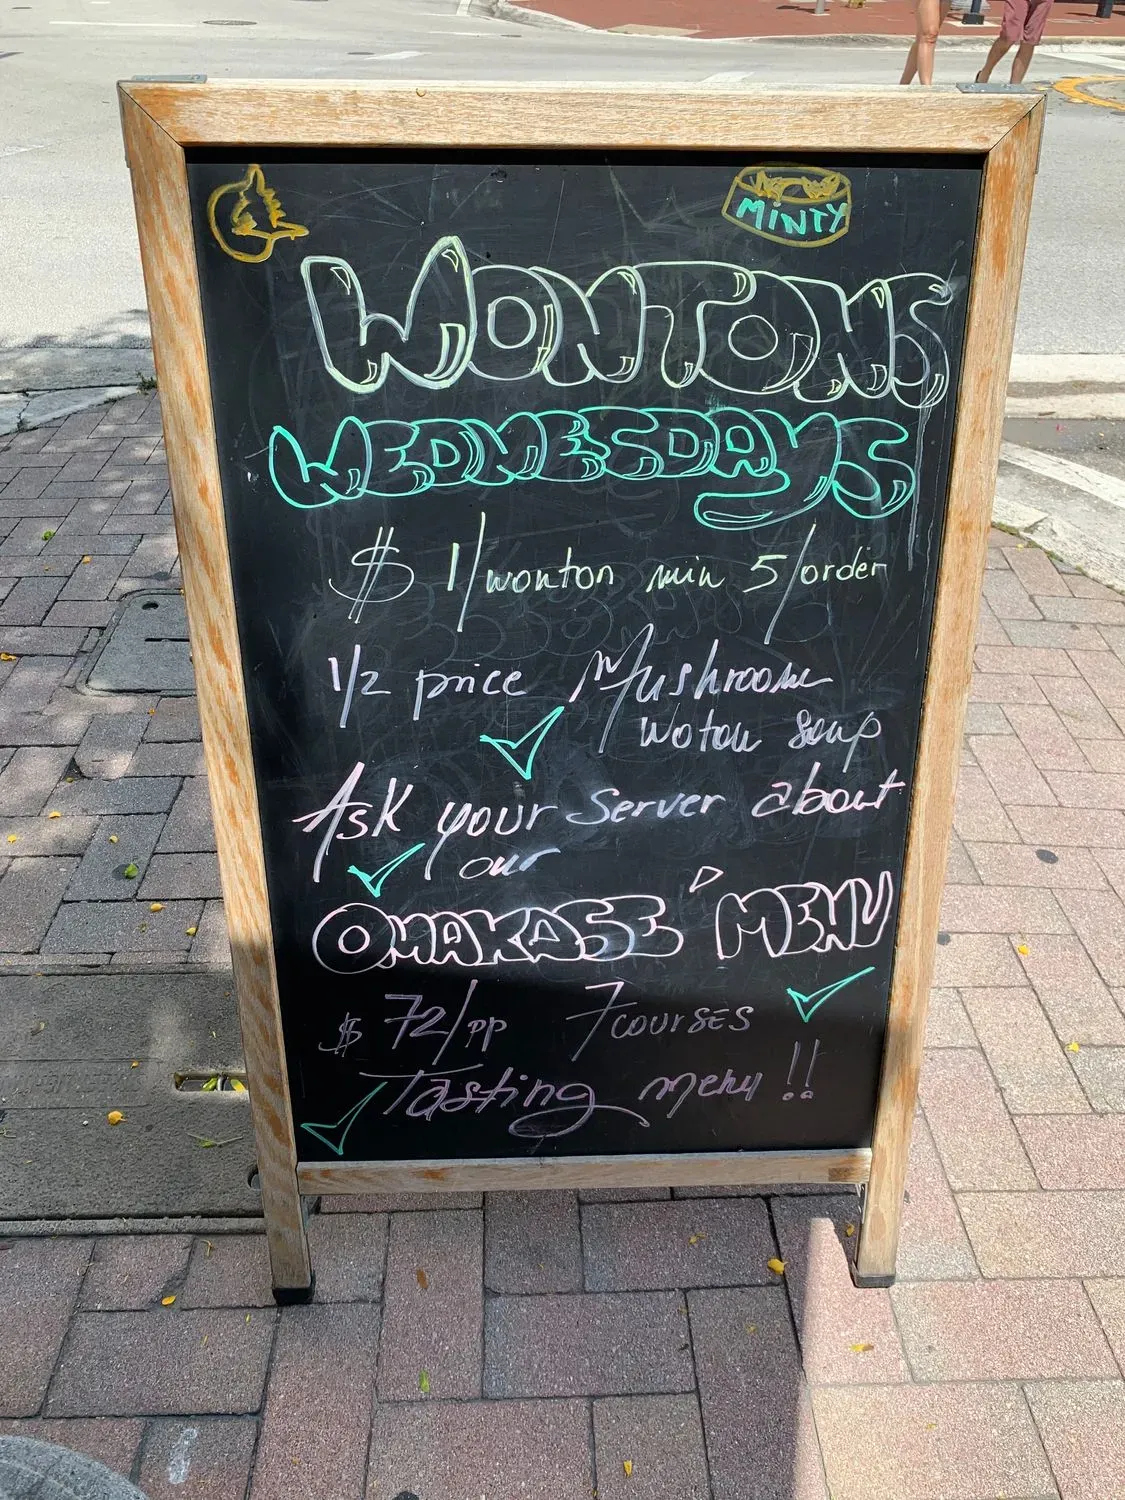 MINTY
WONTONS
WEDNESDAYS
$ 1/wonton min 5/order
1/2 price Mushroom
woton soup
Ask your server about
our
OMAKASE' MENU
$ 72/pp 7 courses
Tasting menu !!